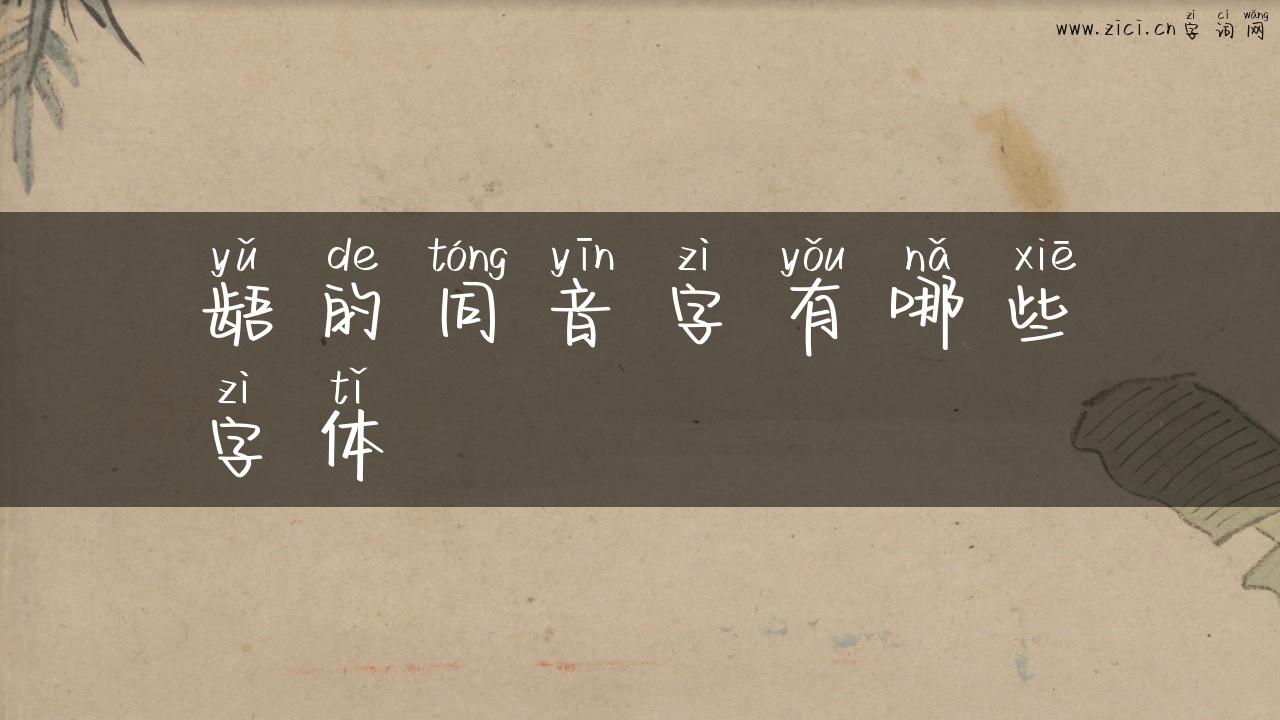 zì cí wǎng
www.zici.cn 字词网
yǔ de tóng yīn zì yǒu nǎ xiē
龉的同音字有哪些
zì tǐ
字体